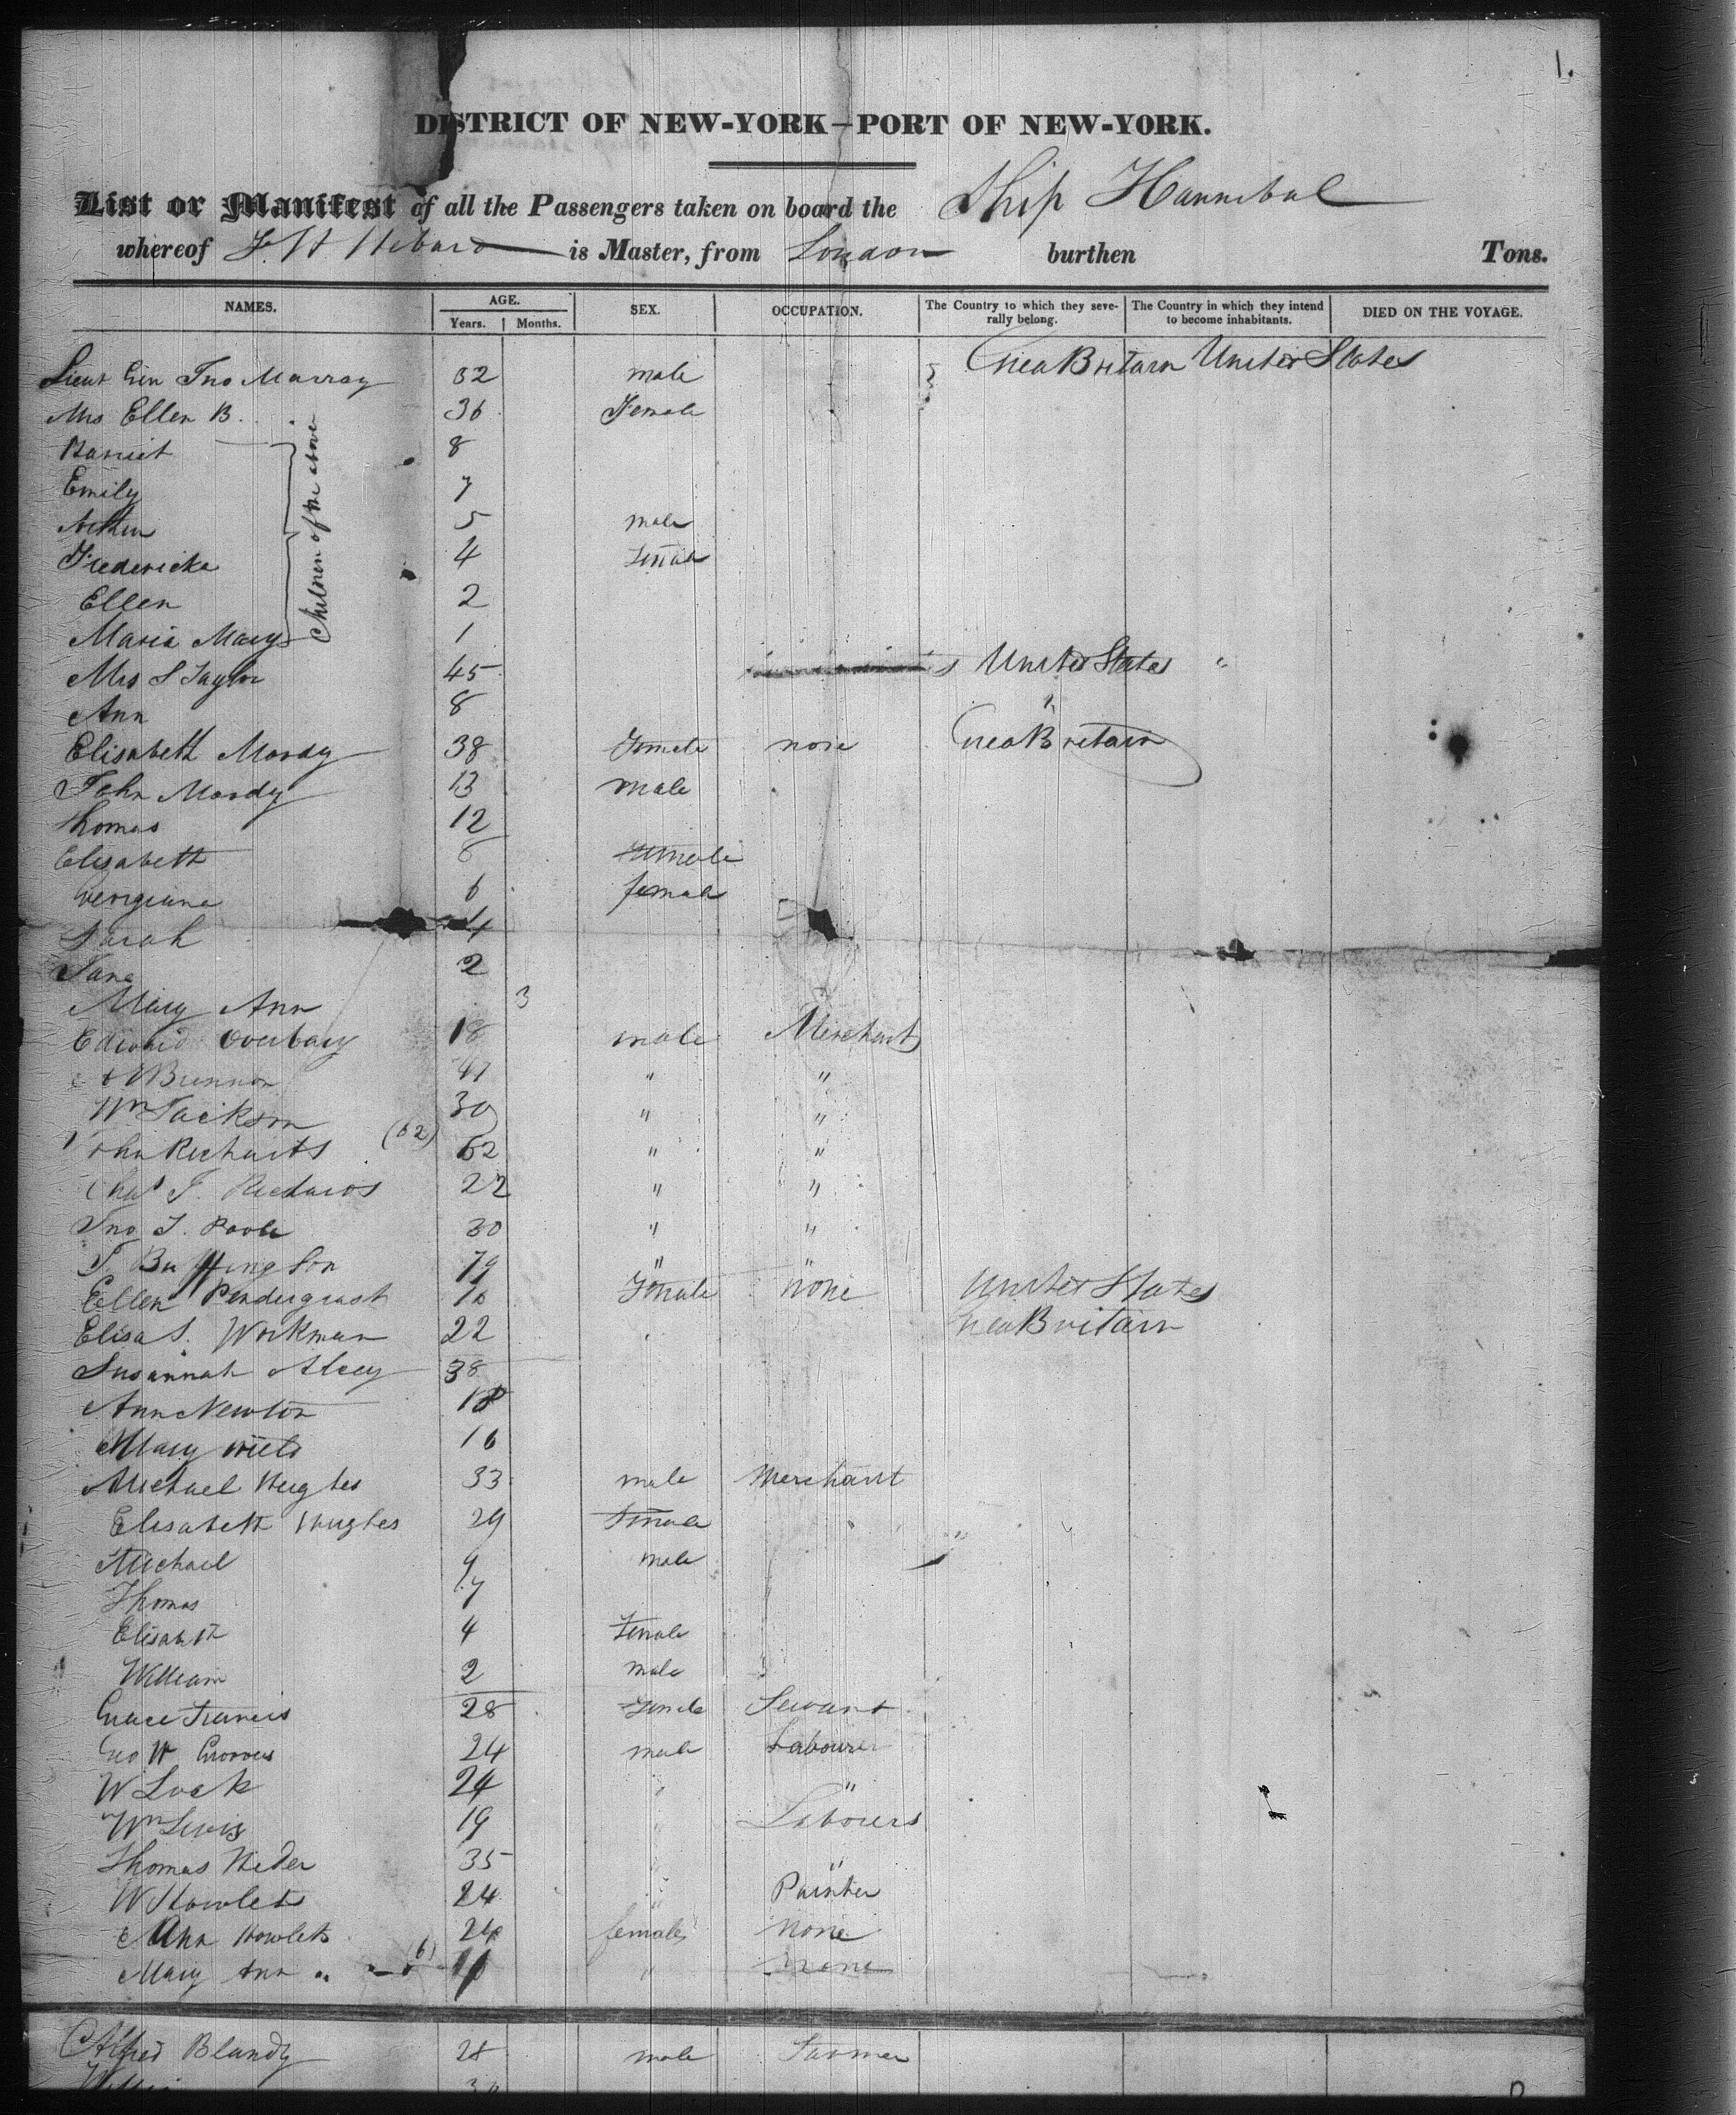 1.
DISTRICT OF NEW-YORK—PORT OF NEW-YORK.
List or Manifest of all the Passengers taken on board the Ship Hannibal
whereof F. H Hebard is Master, from London burthen Tons.
NAMES. AGE. Years. Months. SEX. OCCUPATION. The Country to which they severally belong. The Country in which they intend to become inhabitants. DIED ON THE VOYAGE.
Lieut Gen Jno Murray 52 male Grea Britain United States
Mrs Ellen B. 36 Female
Harriet 8
Emily 7
Arthur 5 male
Fredericka 4 female
Ellen 2
Maria Mary 1
Children of the above
Mrs S Taylor 45 United States "
Ann 8 "
Elisabeth Mordy 38 Female none Grea Britain
John Mordy 13 male
Thomas 12
Elisabeth 8 female
Georgiana 6 female
Sarah 4
Jane 2
Mary Ann 3
Edward Overbury 18 male Merchant
Brunnon 41 " "
Wm Jackson 30 " "
John Richards (62) 62 " "
Chas J. Richards 22 " "
Jno J. Poole 30 " "
J. Buffington 19 " "
Ellen Pendergrast 16 Female none United States
Elisa S. Workman 22 Grea Britain
Susannah Alcey 38
Ann Newton 18
Mary Wild 16
Michael Hughes 33 male Merchant
Elisabeth Hughes 29 female
Michael 9 male
Thomas 7
Elisabeth 4 Female
William 2 male
Grace Francis 28 Female Servant
Geo W Grooves 24 male Labourer
W Lock 24 " "
Wm Lewis 19 " Labourers
Thomas Hider 35 " "
W Howlets 24 " Painter
Ann Howlets 24 female none
Mary Ann " (6) " none
Alfred Blandy 28 male Farmer